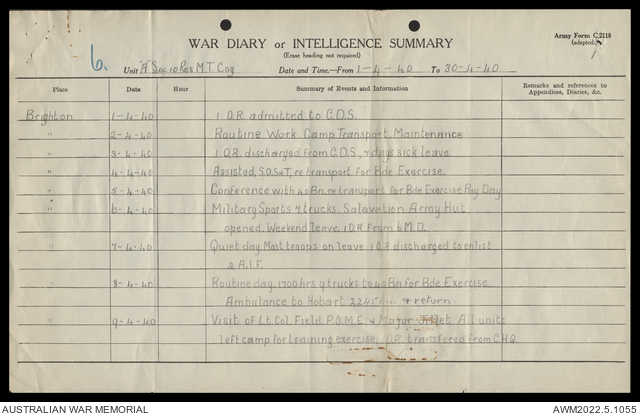 Army Form C.2118
(adapted.)
WAR DIARY or INTELLIGENCE SUMMARY
(Erase heading not required)
6.
Unit "A" Sec 10 Res M.T. Coy Date and Time.—From 1-4-40 To 30-4-40
Place Date Hour Summary of Events and Information Remarks and references to
Appendices, Diaries, &c.
Brighton 1-4-40 1 O.R. admitted to C.D.S.
" 2-4-40 Routine Work. Camp Transport. Maintenance
" 3-4-40 1 O.R. discharged from C.D.S, 7 days sick leave
" 4-4-40 Assisted, S.O.S&T, re transport for Bde Exercise.
" 5-4-40 Conference with 40Bn. re transport for Bde Exercise Pay Day
" 6-4-40 Military Sports 7 trucks. Salavation Army Hut
opened. Weekend leave. 1 O.R. From 6 M.D.
" 7-4-40 Quiet day. Most troops on leave. 1 O.R discharged to enlist
2 A.I.F.
" 8-4-40 Routine day. 1700hrs 9 trucks to 40Bn for Bde Exercise.
Ambulance to Hobart. 2245 & return.
" 9-4-40 Visit of Lt. Col. Field, P.O.M.E. & Major All units
left camp for training exercise. transfered from C.H.Q
AUSTRALIAN WAR MEMORIAL AWM2022.5.1055